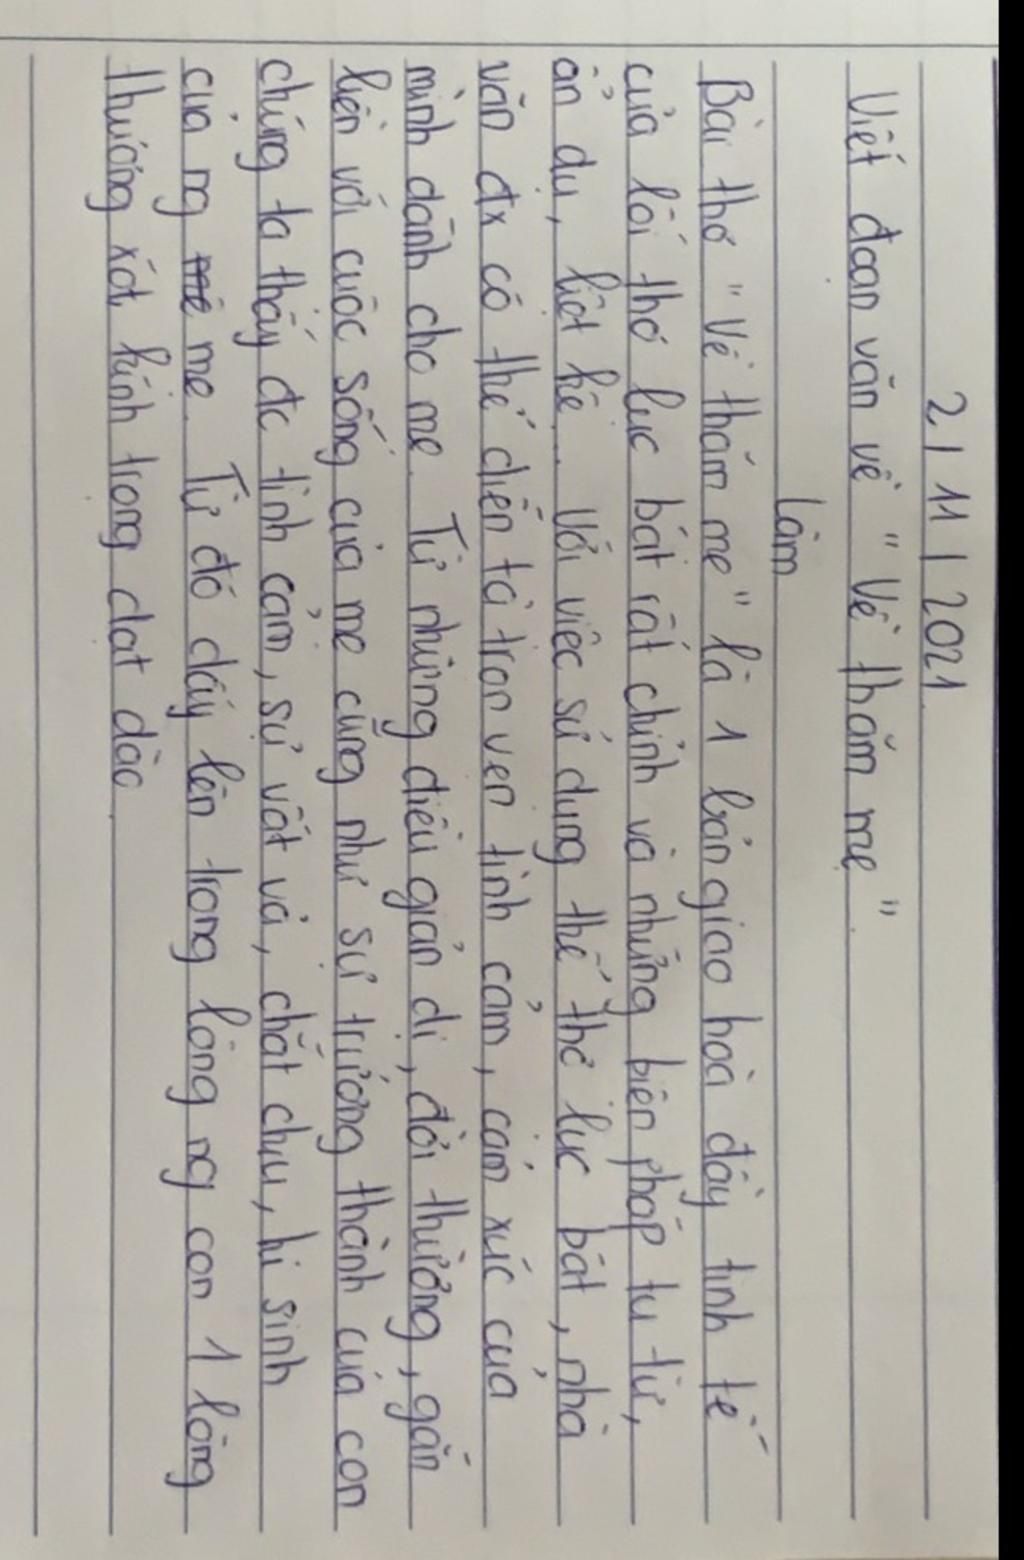 2 / 11 / 2021
Viết đoạn văn về " Về thăm mẹ ".
Làm
Bài thơ " Về thăm mẹ " là 1 bản giao hoà đầy tinh tế
của lối thơ lục bát rất chỉnh và những biện pháp tu từ,
ẩn dụ, liệt kê. Với việc sử dụng thể thơ lục bát, nhà
văn đx có thể diễn tả trọn vẹn tình cảm, cảm xúc của
mình dành cho mẹ. Từ những điều giản dị, đời thường, gắn
liền với cuộc sống của mẹ cũng như sự trưởng thành của con
chúng ta thấy đc tình cảm, sự vất vả, chắt chiu, hi sinh
của ng mẹ. Từ đó dấy lên trong lòng ng con 1 lòng
thương xót, kính trọng dạt dào.